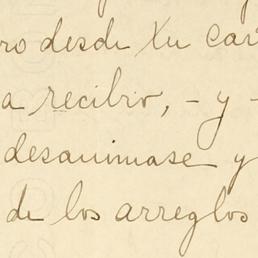 ro desde tu car
a recibió, - y -
desanimase y
de los arreglos